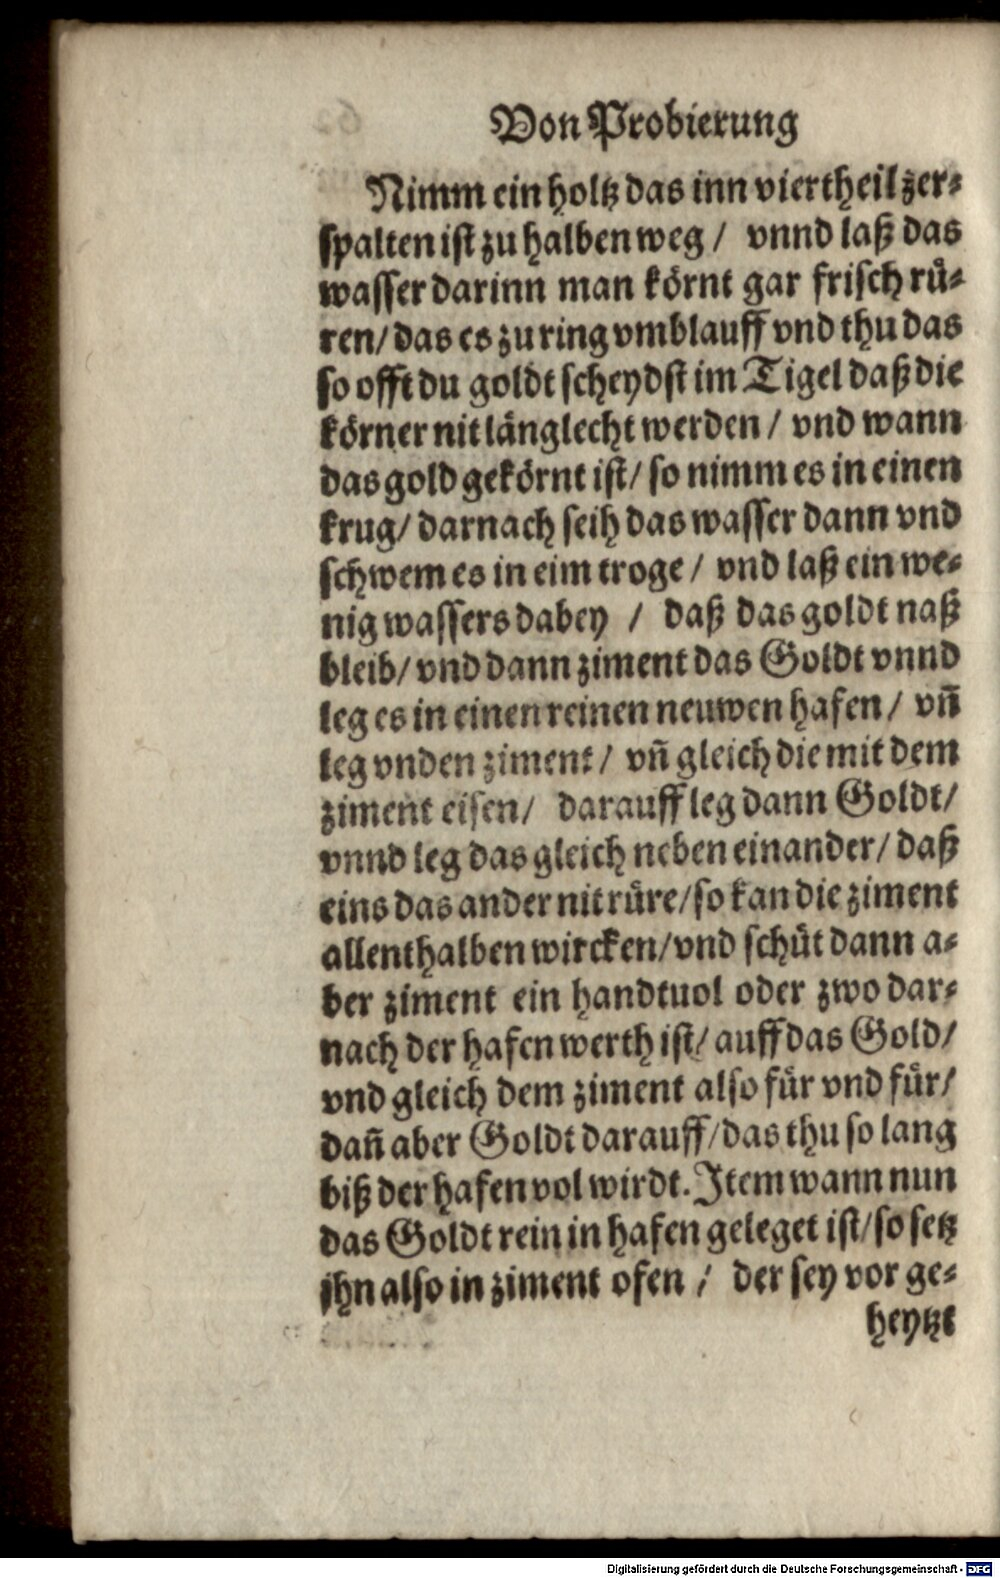 Von Probierung
Nimm ein holtz das inn viertheil zer⸗
spalten ist zu halben weg / vnnd laß das
wasser darinn man körnt gar frisch rü⸗
ren/ das es zu ring vmblauff vnd thu das
so offt du goldt scheydst im Tigel daß die
körner nit länglecht werden / vnd wann
das gold gekörnt ist/ so nimm es in einen
krug/ darnach seih das wasser dann vnd
schwem es in eim troge / vnd laß ein we⸗
nig wassers dabey / daß das goldt naß
bleib/ vnd dann ziment das Goldt vnnd
leg es in einen reinen neuwen hafen / vñ
leg vnden ziment / vñ gleich die mit dem
ziment eisen / darauff leg dann Goldt/
vnnd leg das gleich neben einander/ daß
eins das ander nit rüre/ so kan die ziment
allenthalben wircken/ vnd schüt dann a⸗
ber ziment ein handtuol oder zwo dar⸗
nach der hafen werth ist/ auff das Gold/
vnd gleich dem ziment also für vnd für/
dañ aber Goldt darauff/ das thu so lang
biß der hafen vol wirdt. Item wann nun
das Goldt rein in hafen geleget ist/ so setz
jhn also in ziment ofen / der sey vor ge⸗
heytzt
Digitalisierung gefördert durch die Deutsche Forschungsgemeinschaft - DFG